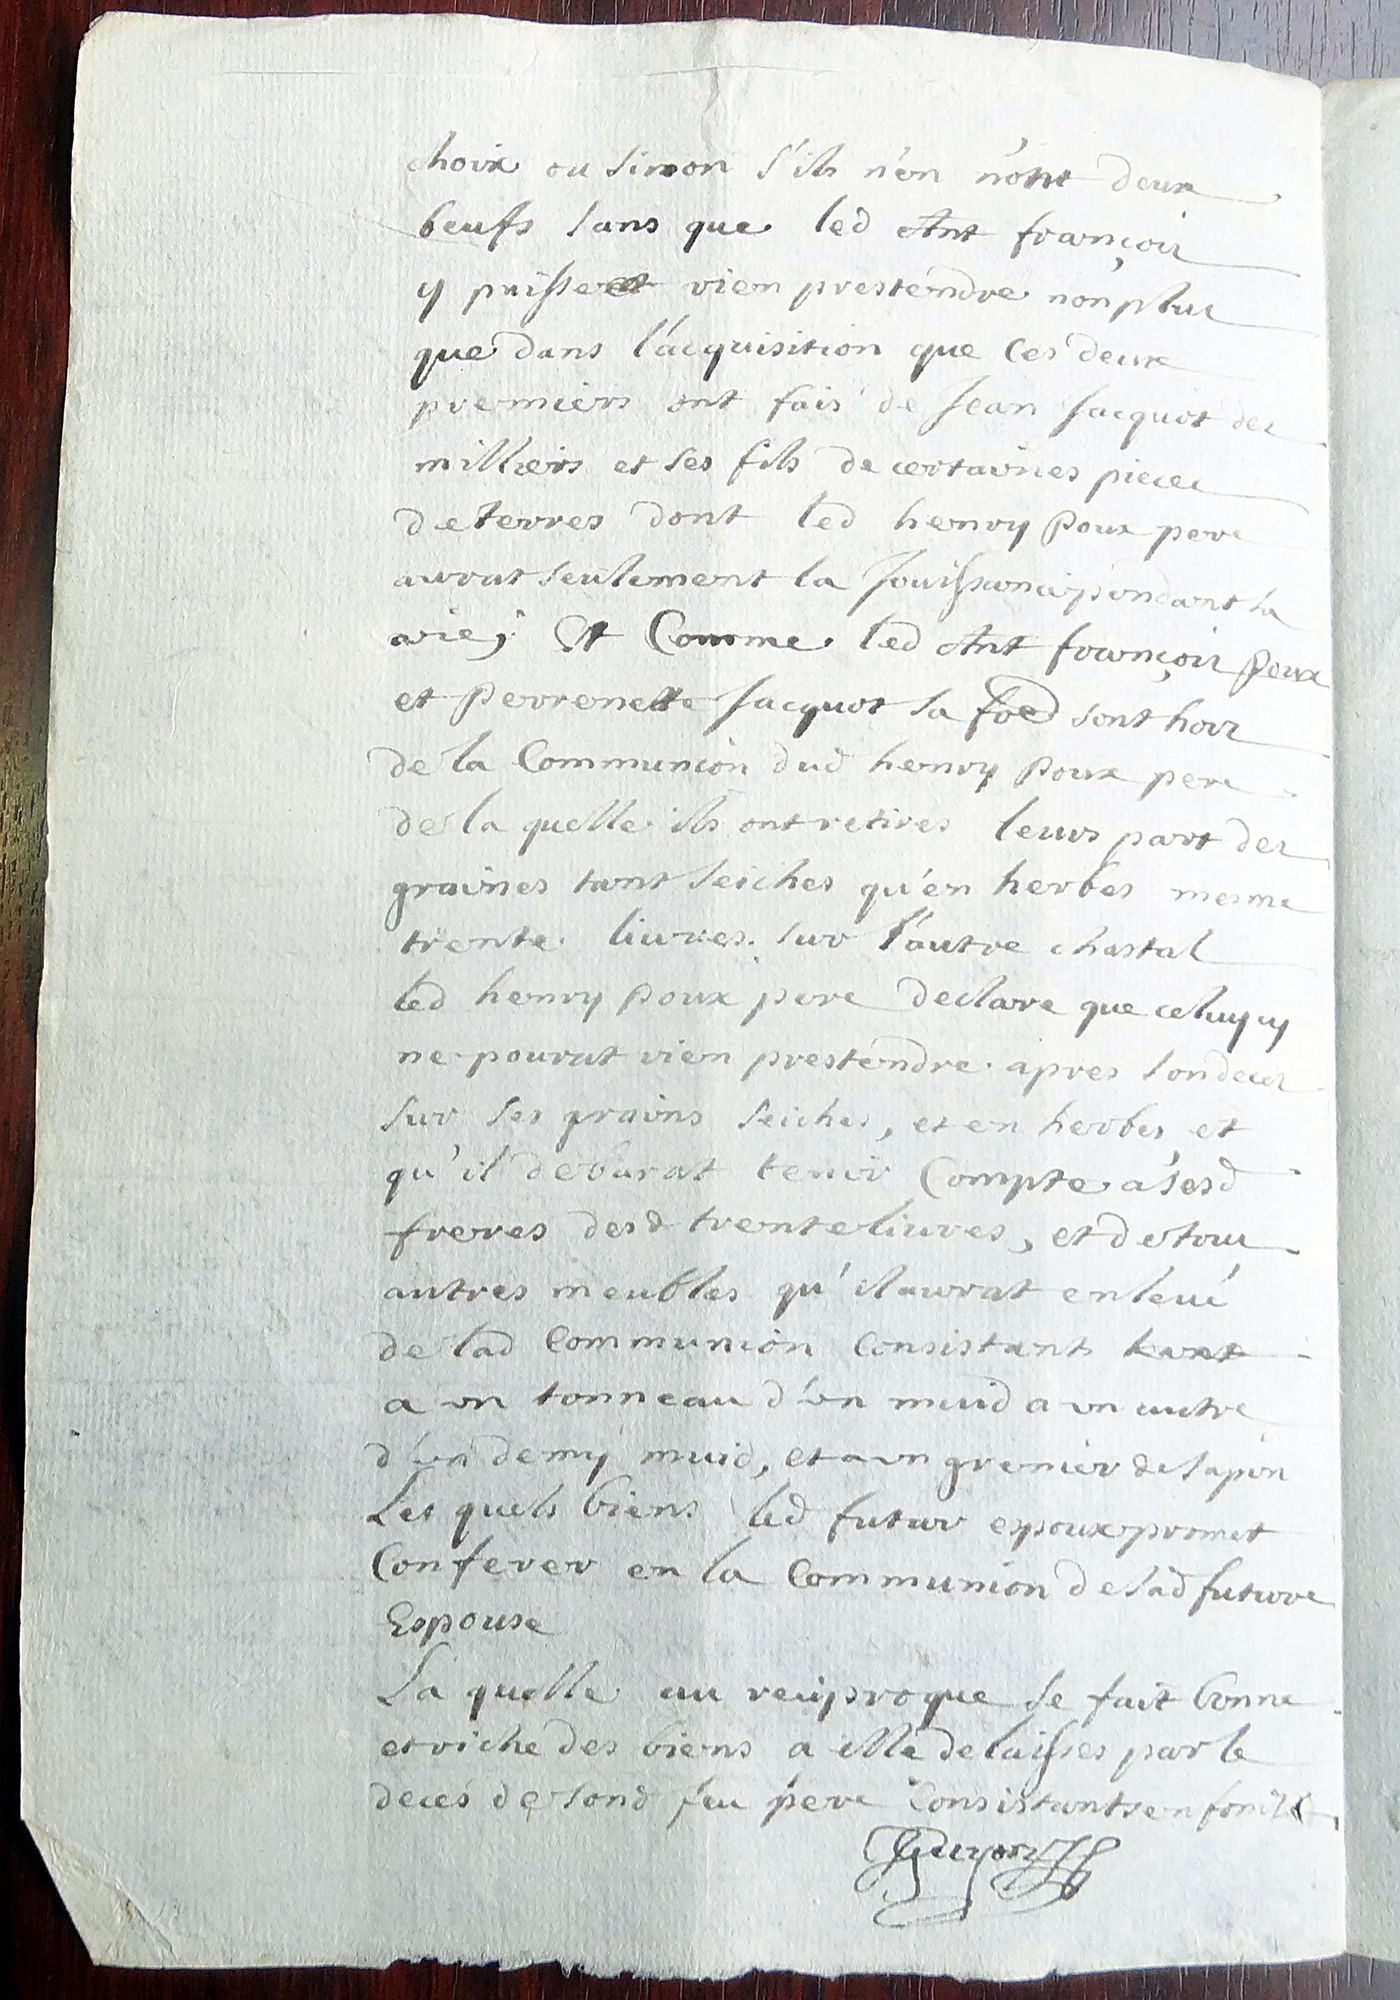 choix ou sinon s'ils n'en n'ont deux
beufs sans que led Ant françois
y puisse rien prestendre non plus
que dans l'acquisition que ces deux
premiers ont fais de Jean Jacquot des
milliers et ses fils de certaines pieces
de terres dont led henry Poux pere
aurat seulement la Jouissance pendant sa
vie; Et Comme led Ant françois Poux
et Perrenette Jacquot sa foed sont hors
de la Communion dud henry Poux pere
de la quelle ils ont retires leurs part des
graines tant seiches qu'en herbes mesme
trente livres sur l'autre chastal
led henry Poux pere declare que celuy cy
ne pourat rien prestendre apres son deces
sur ses grains seiches, et en herbes et
qu'il deburat tenir Compte a sesd
freres desd trente livres, et de tous
autres meubles qu'il aurat enlevé
de lad Communion Consistants
a un tonneau d'un muid a un autre
d'un demy muid, et a un grenier de sapin
Les quels biens led futur espoux promet
Conferer en la Communion de sad future
Espouse
La quelle au reciproque se fait bonne
et riche des biens a elle delaisses par le
deces de sond feu pere Consistants en fond